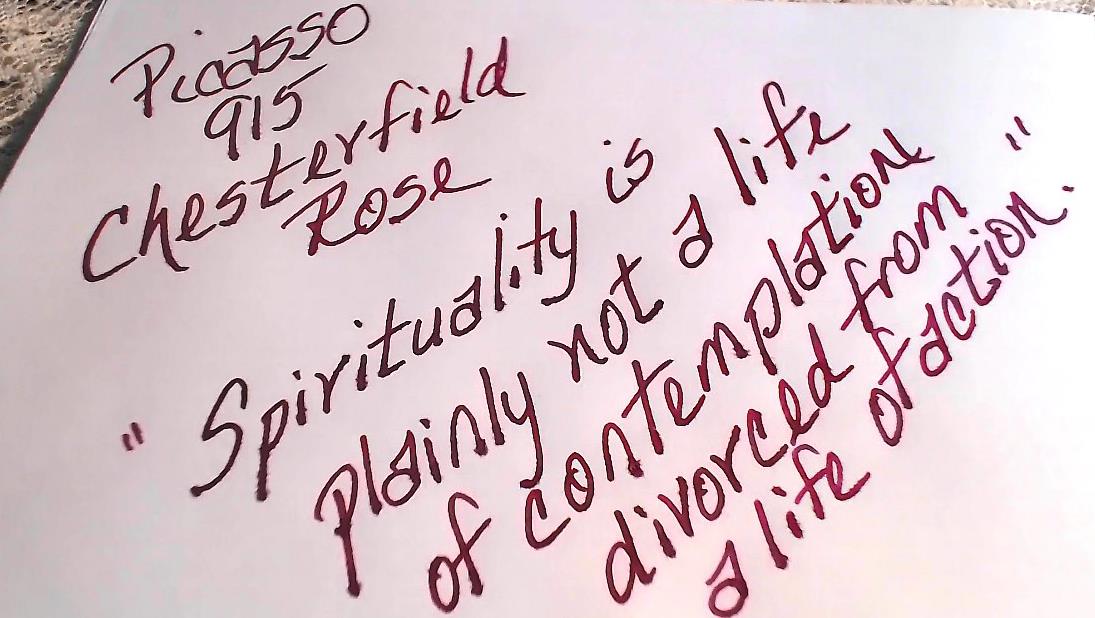 Picasso
915
Chesterfield
Rose
"Spirituality is
plainly not a life
of contemplation
divorced from
a life of action."